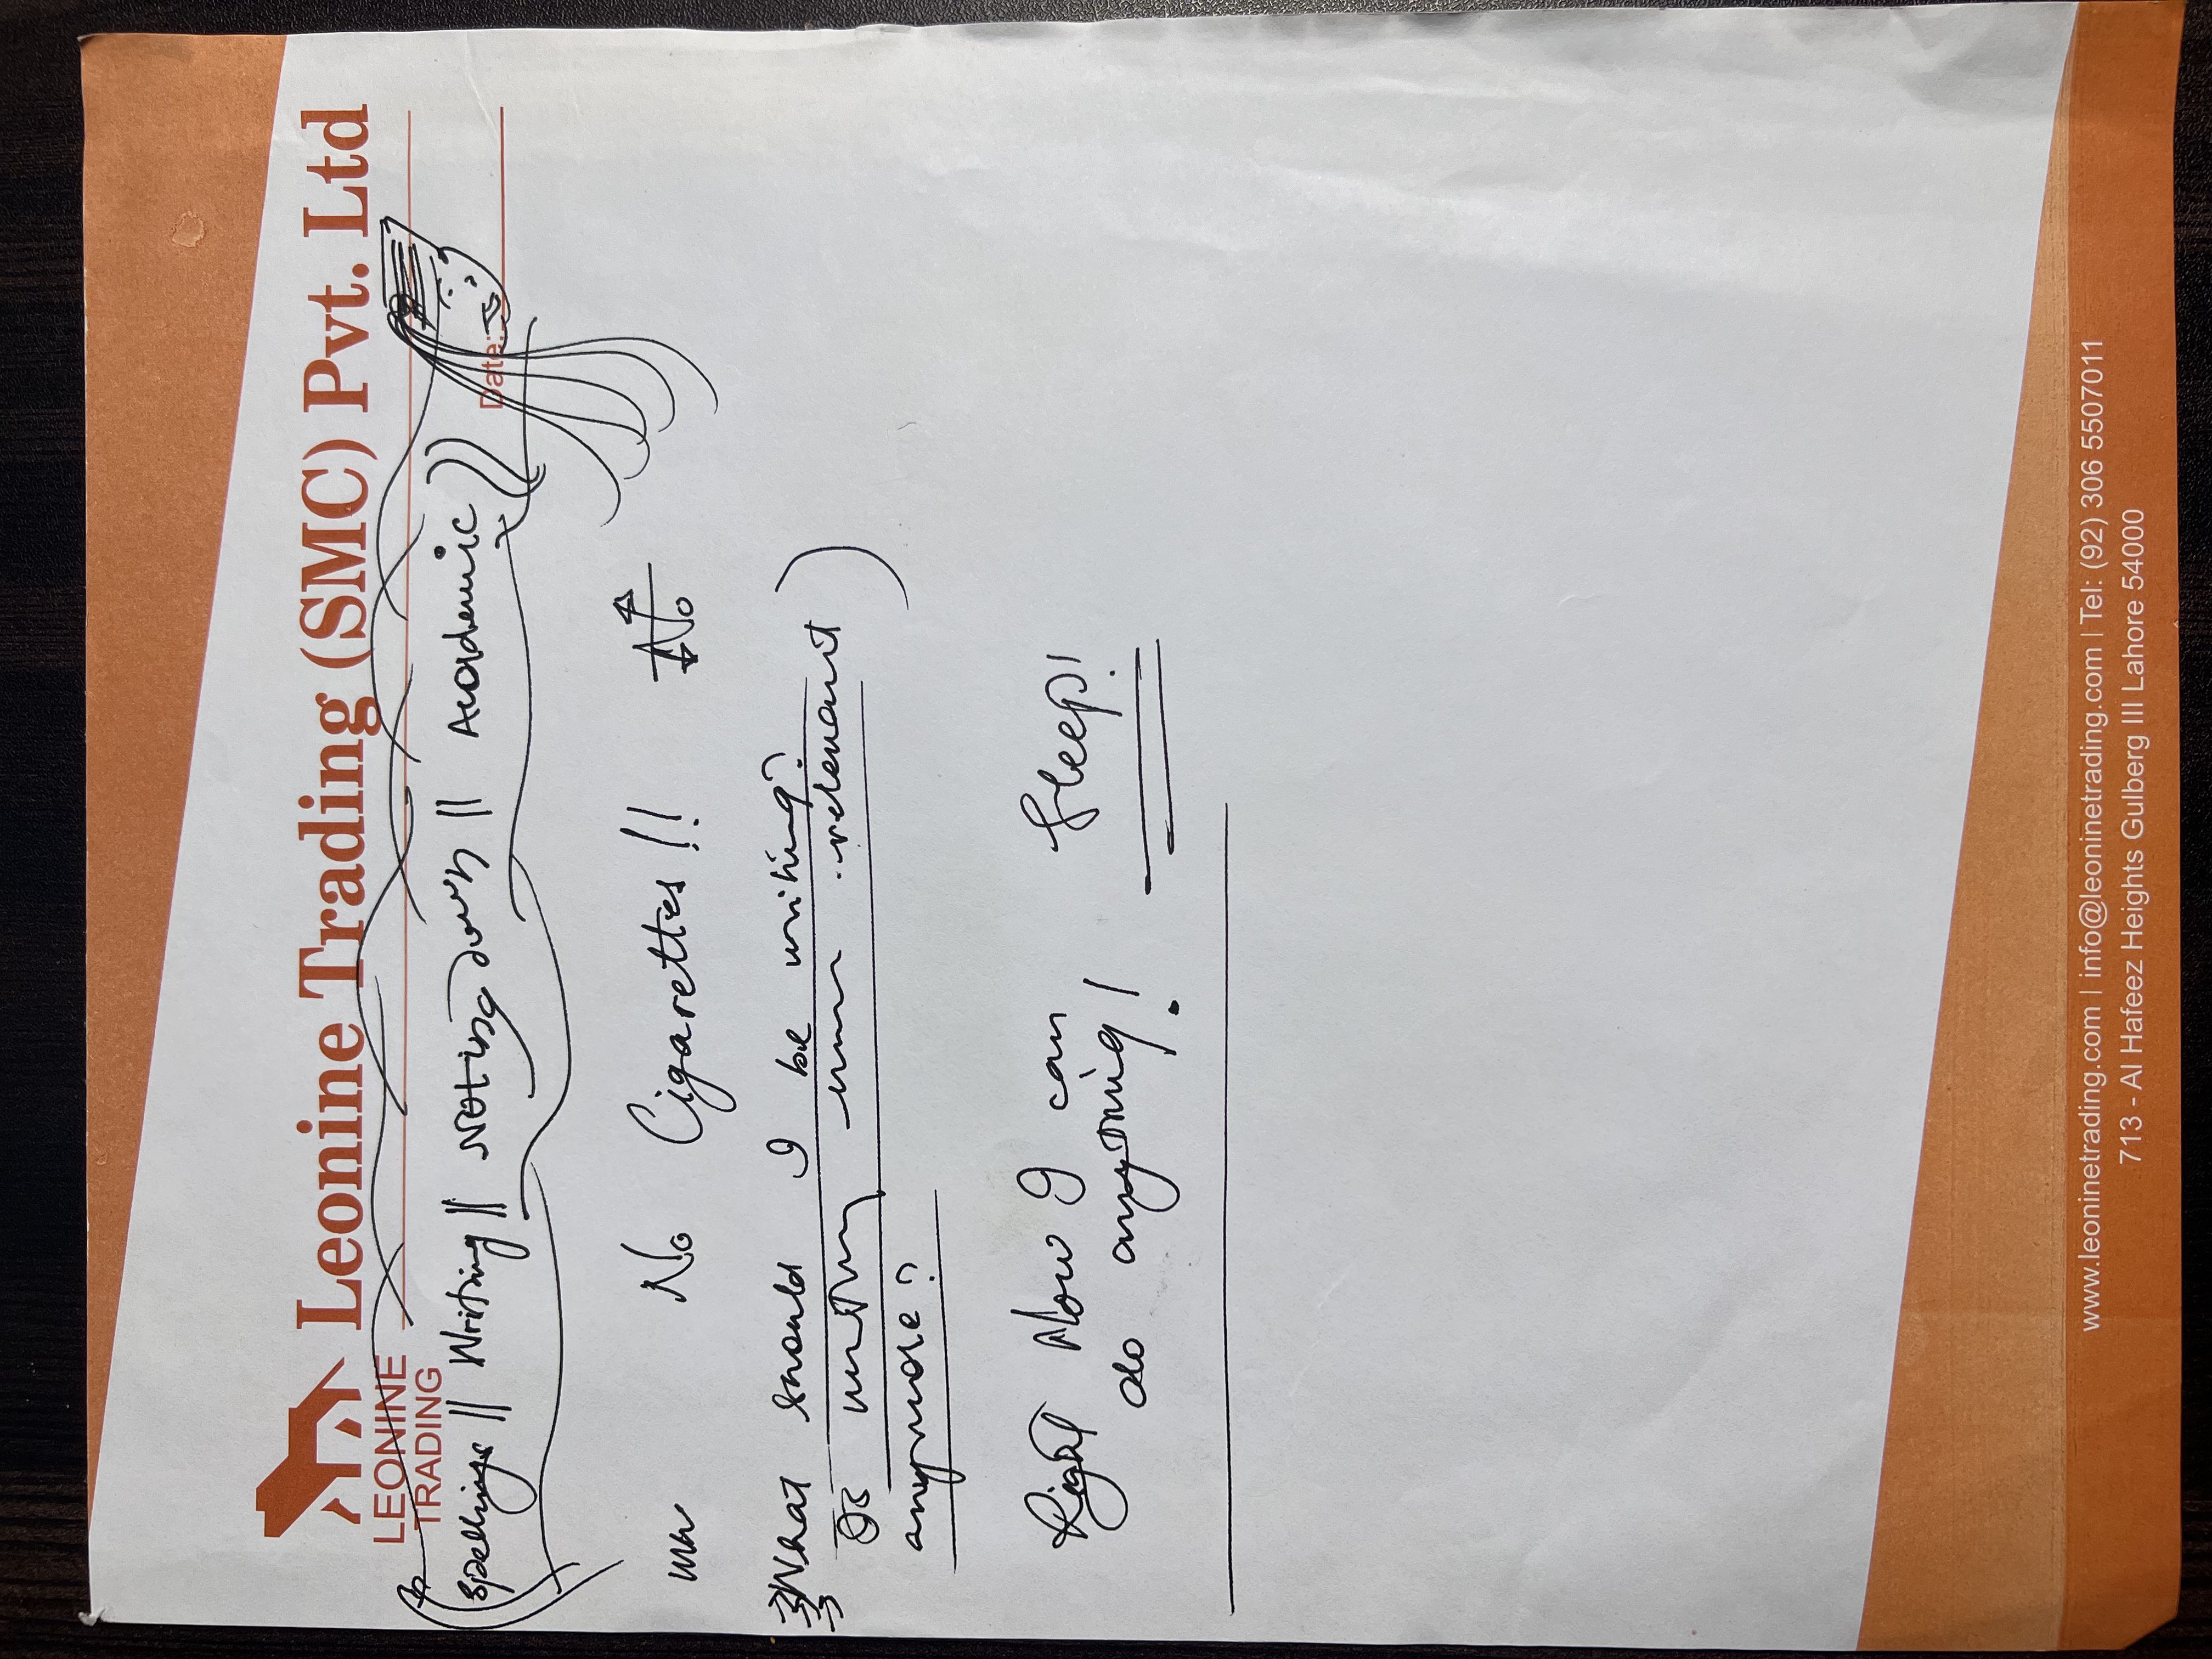 Leonine Trading (SMC) Pvt. Ltd
LEONINE
TRADING
Date:
Spellings || Writing || Noting down || Academic
No Cigarettes!! No
What should I be writing?
Is writing even relevant
anymore?
Right Now I can
do anything!
Sleep!
www.leoninetrading.com | info@leoninetrading.com | Tel: (92) 306 5507011
713 - Al Hafeez Heights Gulberg III Lahore 54000